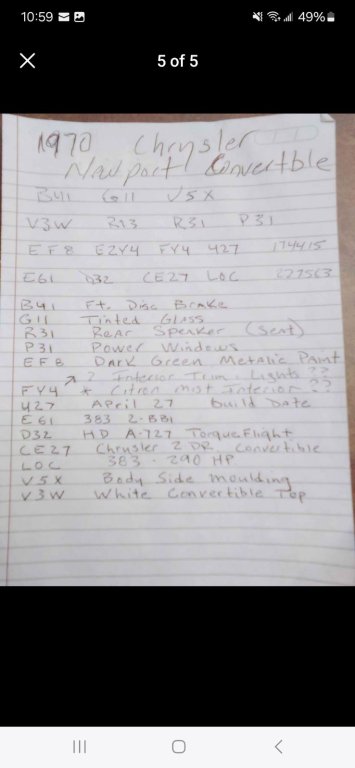 10:59 49%
5 of 5
1970 Chrysler
Newport Convertble
B41 G11 V5X
V3W R13 R31 P31
EF8 E2Y4 FY4 427 174415
E61 D32 CE27 LOC 227563
B41 Ft. Disc Brake
G11 Tinted Glass
R31 Rear Speaker (Seat)
P31 Power Windows
EF8 Dark Green Metalic Paint
↗ 2 Interior Trim. Lights ??
FY4 * Citron mist Interior ??
427 April 27 Build Date
E61 383 2-BBl
D32 HD A-727 TorqueFlight
CE27 Chrysler 2 DR Convertible
LOC 383 - 290 HP
V5X Body Side moulding
V3W White Convertible Top